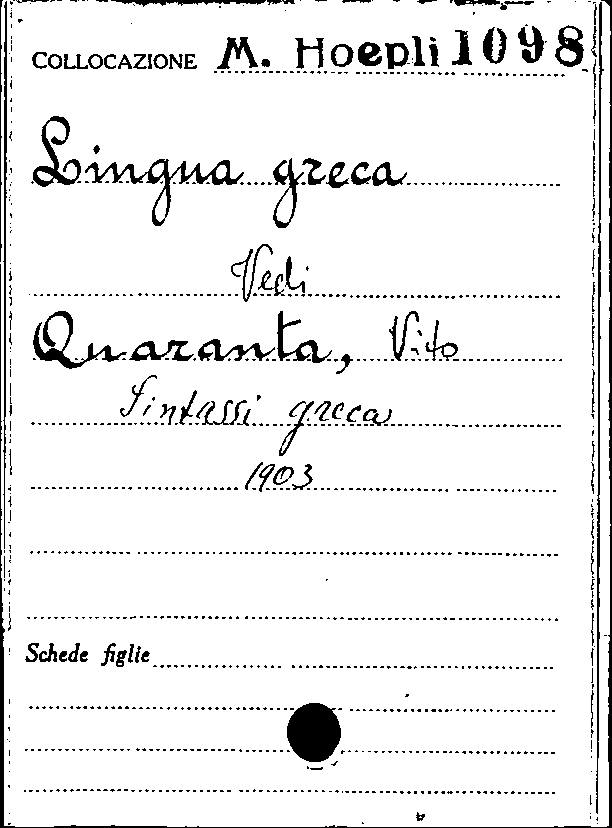 COLLOCAZIONE M. Hoepli 1098
Lingua greca
Vedi
Quaranta, Vito
Sintassi greca
1903
Schede figlie